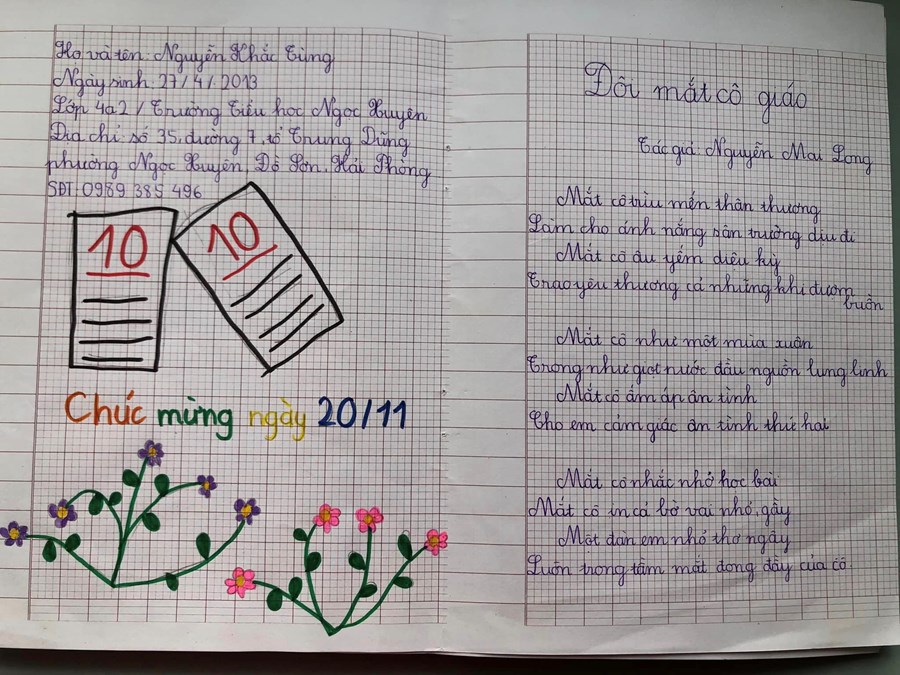 Họ và tên: Nguyễn Khắc Tùng
Ngày sinh: 27/4/2013
Lớp 4a2 / Trường Tiểu học Ngọc Xuyên
Địa chỉ số 35, đường 7, tổ Trung Dũng
phường Ngọc Xuyên, Đồ Sơn, Hải Phòng
SĐT: 0989 385 496
10
10
Chúc mừng ngày 20/11
Đôi mắt cô giáo
Tác giả Nguyễn Mai Long
Mắt cô trìu mến thân thương
Làm cho ánh nắng sân trường dịu đi
Mắt cô âu yếm diệu kỳ
Trao yêu thương cả những khi đượm
buồn
Mắt cô như một mùa xuân
Trong như giọt nước đầu nguồn lung linh
Mắt cô ấm áp ân tình
Cho em cảm giác ân tình thứ hai
Mắt cô nhắc nhở học bài
Mắt cô in cả bờ vai nhỏ, gầy
Một đàn em nhỏ thơ ngây
Luôn trong tầm mắt dong đầy của cô.